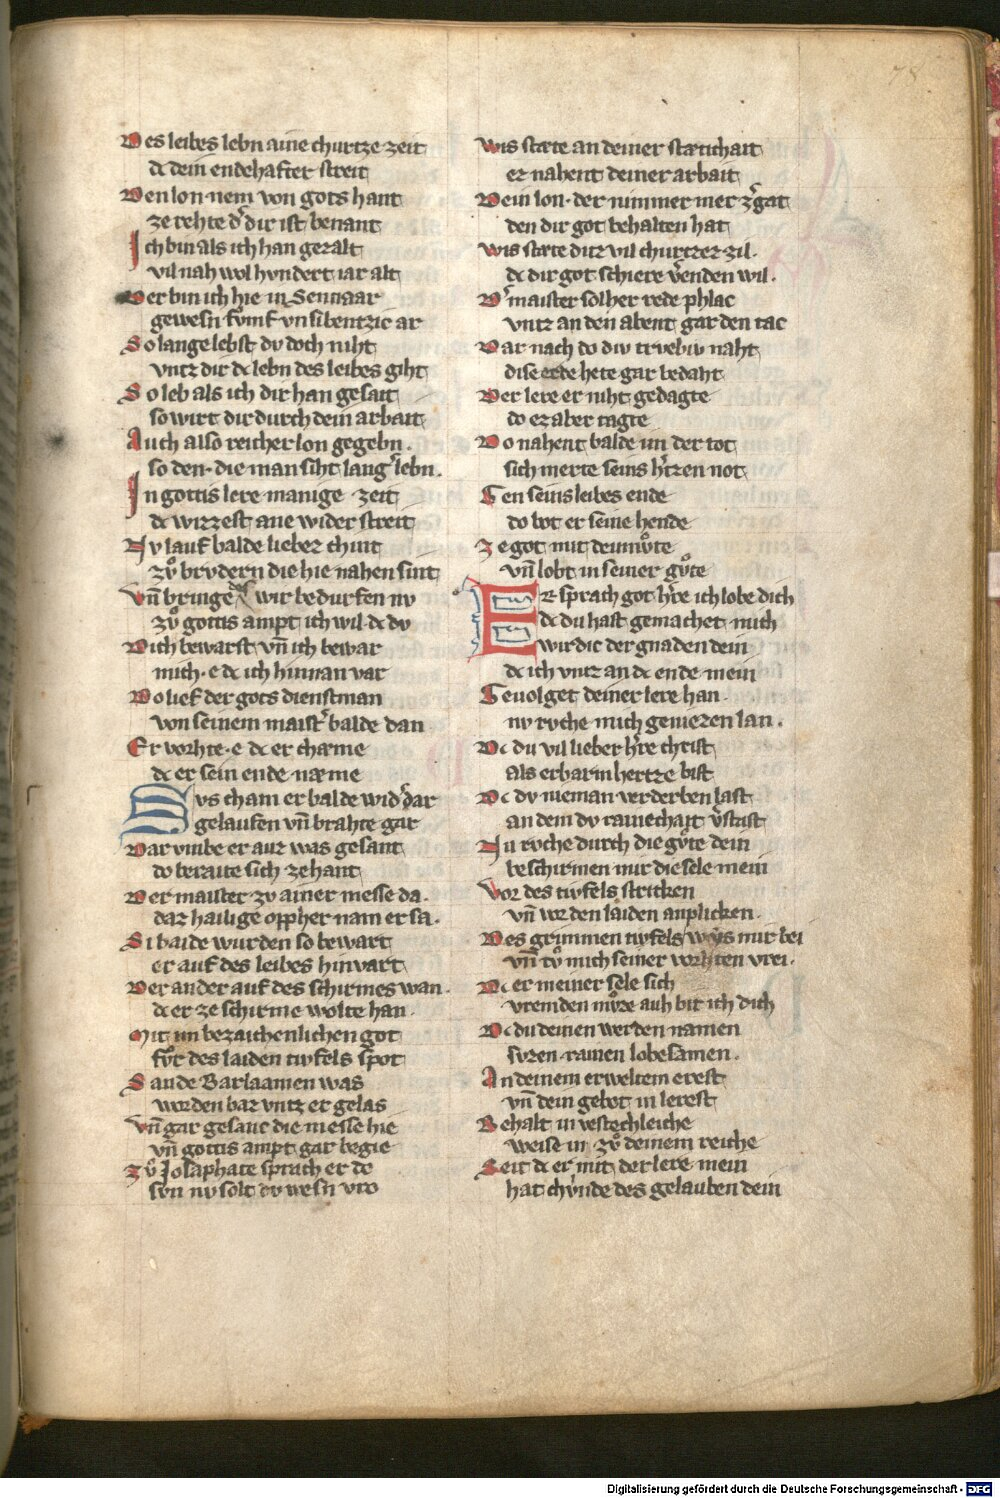 78
Des leibes lebn aine churtze zeit
dc dein endehafter streit
Den lon nem von gots hant
ze rehte dͤ dir ist benant
Ich bin als ich han gezalt
vil nah wol hvndert iar alt
Der bin ich hie in Sennaar
gewesn fvmf vn sibentzic iar
So lange lebst dv doch niht
vntz dir dc lebn des leibes giht
So leb als ich dir han gesait
so wirt dir durch dein arbait
Auch also reicher lon gegebn.
so den. die man siht lang lebn.
In gottis lere manige zeit
dc wizzest ane wider streit
Nv lauf balde lieber chint
zvͦ brvdern die hie nahen sint
vn̄ bringe wir bedurfen nv
zvͦ gottis ampt ich wil dc dv
Dich bewarst vn̄ ich bewar
mich. e dc ich hinnan var
Do lief der gots dienstman
von seinem maistͬ balde dan
Er vorhte. e dc er chæme
dc er sein ende næme
Svs cham er balde wid dar
gelaufen vn̄ brahte gar
Dar vmbe er auz was gesant
do beraite sich zehant
Der maister zv ainer messe da.
daz hailige oppher nam er sa.
Si baide wurden so bewart
er auf des leibes hinvart
Der ander auf des schirmes wan.
dc er ze schirme wolte han
Mit im bezaichenlichen got
fvͤr des laiden tivfels spot
Sande Barlaamen was
worden baz vntz er gelas
vn̄ gar gesanc die messe hie
vn̄ gottis ampt gar begie
Zvͦ Josaphate sprach er do
svn nv solt dv wesn vro
wis stæte an deiner stætichait
ez nahent deiner arbait
Dein lon. der nimmer mer zͬgat
den dir got behalten hat
wis stæte ditz vil churtzez zil.
dc dir got schiere vͤenden wil.
Dͬ maister solher rede phlac
vntz an den abent gar den tac
Dar nach do div trvebiv naht
dise erde hete gar bedaht
Der lere er niht gedagte
do ez aber tagte
Do nahent balde im der tot
sich merte seins hͬtzen not
Gen seins leibes ende
do bot er seine hende
Ze got mit deimvͤte
vn̄ lobt in seiner gvͤte
Er sprach got hͬre ich lobe dich
dc du hast gemachet mich
wirdic der gnaden dein
dc ich vntz an dc ende mein
Gevolget deiner lere han
nv rvche mich geniezen lan.
Dc du vil lieber hͬre christ
als erbarmhertze bist
Dc dv nieman verderben last
an dem dv rainechait vͤstast
Nu rvche durch die gvͤte dein
beschirmen mir die sele mein
vor des tivfels stricken
vn̄ vor den laiden anplicken.
Des grimmen tivfels wis mir bei
vn̄ tvͦ mich seiner vorhten vrei.
Dc er meiner sele sich
vremden mvͤze auh bit ich dich
Dc du deinen werden namen
svzen rainen lobesamen.
An deinem erweltem erest
vn̄ dein gebot in lerest
Behalt in vestechleiche
weise in zvͦ deinem reiche
Seit dc er mit der lere mein
hat chvnde des gelauben dein
Digitalisierung gefördert durch die Deutsche Forschungsgemeinschaft - DFG